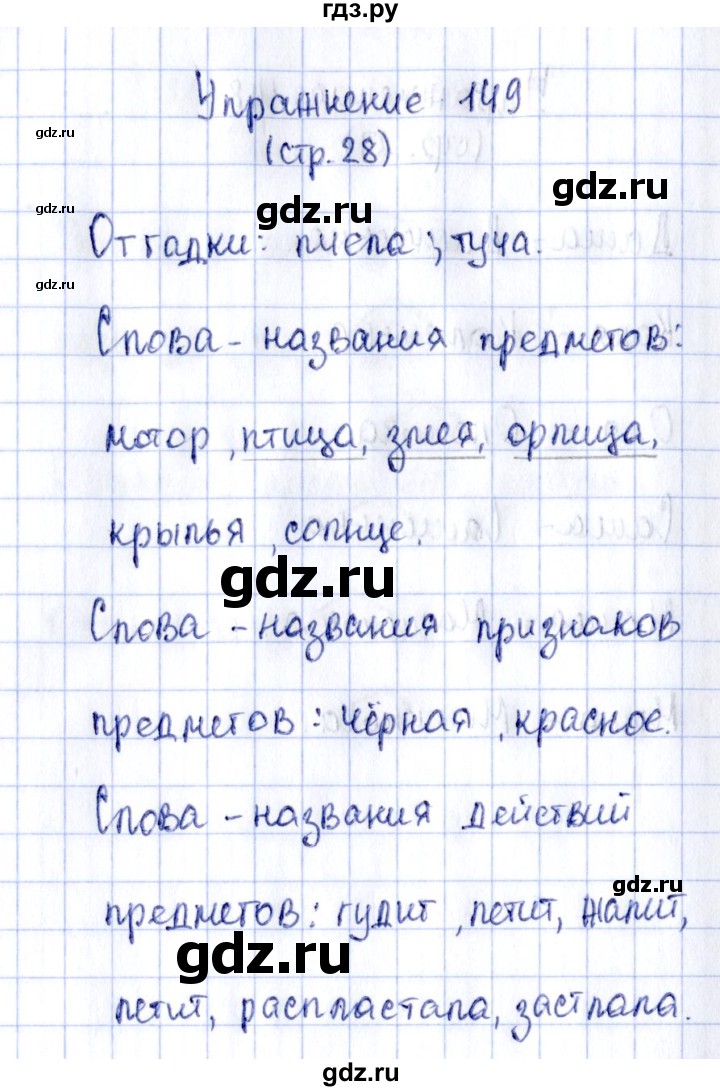 гдз.ру
Упражнение 149
gdz.ru
(стр. 28)
gdz.ru
gdz.ru
gdz.ru
Отгадки: пчела, туча.
gdz.ru
Слова - названия предметов:
мотор, птица, змея, орлица,
крылья, солнце.
gdz.ru
Слова - названия признаков
предметов: чёрная, красное.
Слова - названия действий
gdz.ru
предметов: гудит, летит, жалит,
gdz.ru
летит, распластала, застлала.
gdz.ru